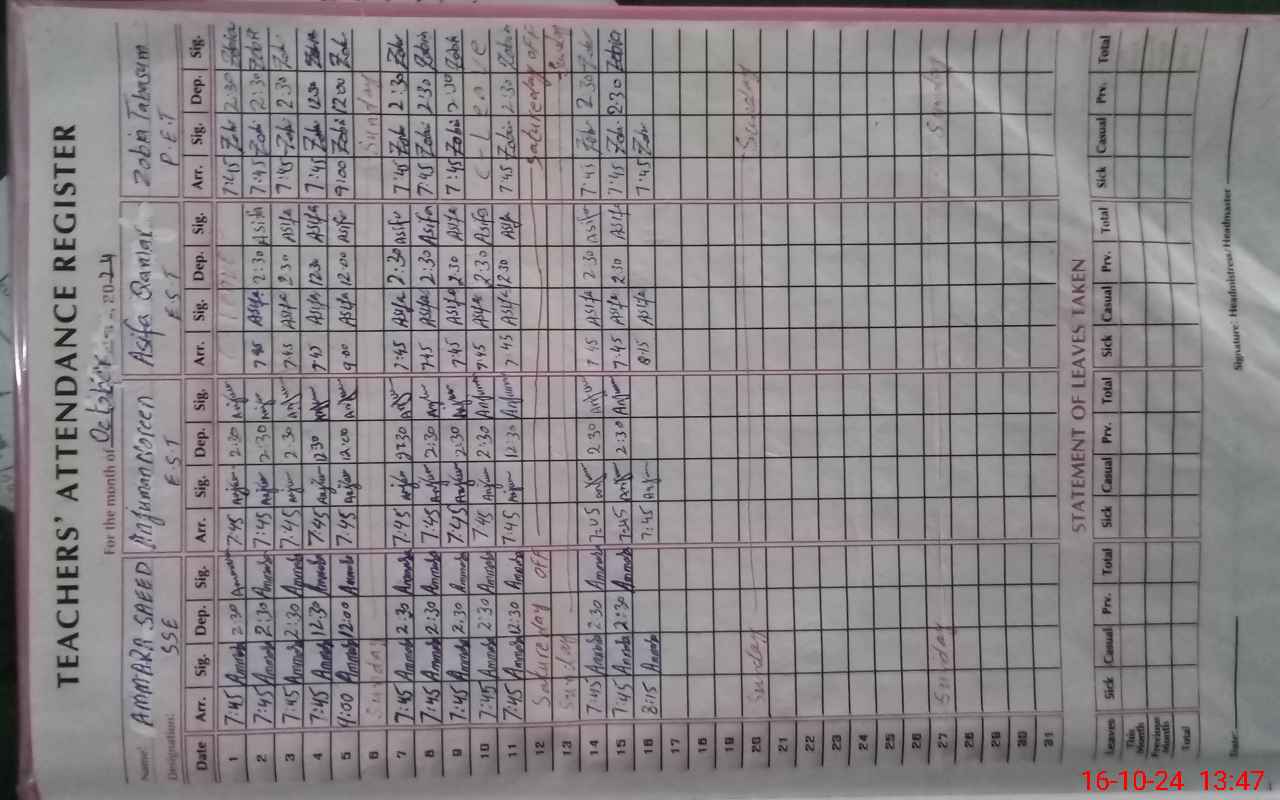 TEACHERS' ATTENDANCE REGISTER
For the month of October 2024
Name: AMMARA SAEED Anjuman Noreen Asifa Qamar Zobia Tabasum
Designation: SSE E.S.T E.S.T P.E.T
Date Arr. Sig. Dep. Sig. Arr. Sig. Dep. Sig. Arr. Sig. Dep. Sig. Arr. Sig. Dep. Sig.
1 7:45 Ammara 2:30 Ammara 7:45 Anjum 2:30 Anjum 7:45 Zobi 2:30 Zobia
2 7:45 Ammara 2:30 Ammara 7:45 Anjum 2:30 Anjum 7:45 Asifa 2:30 Asifa 7:45 Zobi 2:30 Zobia
3 7:45 Ammara 2:30 Ammara 7:45 Anjum 2:30 Anjum 7:45 Asifa 2:30 Asifa 7:45 Zobi 2:30 Zobi
4 7:45 Ammara 12:30 Ammara 7:45 Anjum 12:30 Anjum 7:45 Asifa 12:30 Asifa 7:45 Zobi 12:30 Zobia
5 9:00 Ammara 12:00 Ammara 7:45 Anjum 12:00 Anjum 9:00 Asifa 12:00 Asifa 9:00 Zobi 12:00 Zobi
6 Sunday Sunday
7 7:45 Ammara 2:30 Ammara 7:45 Anjum 2:30 Anjum 7:45 Asifa 2:30 Asifa 7:45 Zobi 2:30 Zobi
8 7:45 Ammara 2:30 Ammara 7:45 Anjum 2:30 Anjum 7:45 Asifa 2:30 Asifa 7:45 Zobi 2:30 Zobia
9 7:45 Ammara 2:30 Ammara 7:45 Anjum 2:30 Anjum 7:45 Asifa 2:30 Asifa 7:45 Zobia 2:30 Zobia
10 7:45 Ammara 2:30 Ammara 7:45 Anjum 2:30 Anjum 7:45 Asifa 2:30 Asifa C-Leave
11 7:45 Ammara 12:30 Ammara 7:45 Anjum 12:30 Anjum 7:45 Asifa 12:30 Asifa 7:45 Zobia 2:30 Zobia
12 Satureday OFF Satureday off
13 Sunday Sunday
14 7:45 Ammara 2:30 Ammara 7:45 Anjum 2:30 Anjum 7:45 Asifa 2:30 Asifa 7:45 Zobi 2:30 Zobi
15 7:45 Ammara 2:30 Ammara 7:45 Anjum 2:30 Anjum 7:45 Asifa 2:30 Asifa 7:45 Zobi 2:30 Zobia
16 8:15 Ammara 7:45 Anjum 8:15 Asifa 7:45 Zobi
17
18
19
20 Sunday Sunday
21
22
23
24
25
26
27 Sunday Sunday
28
29
30
31
STATEMENT OF LEAVES TAKEN
Leaves Sick Casual Prv. Total Sick Casual Prv. Total Sick Casual Prv. Total Sick Casual Prv. Total
This Month
Previous Month
Total
Date: Signature: Headmistress/Headmaster
16-10-24 13:47